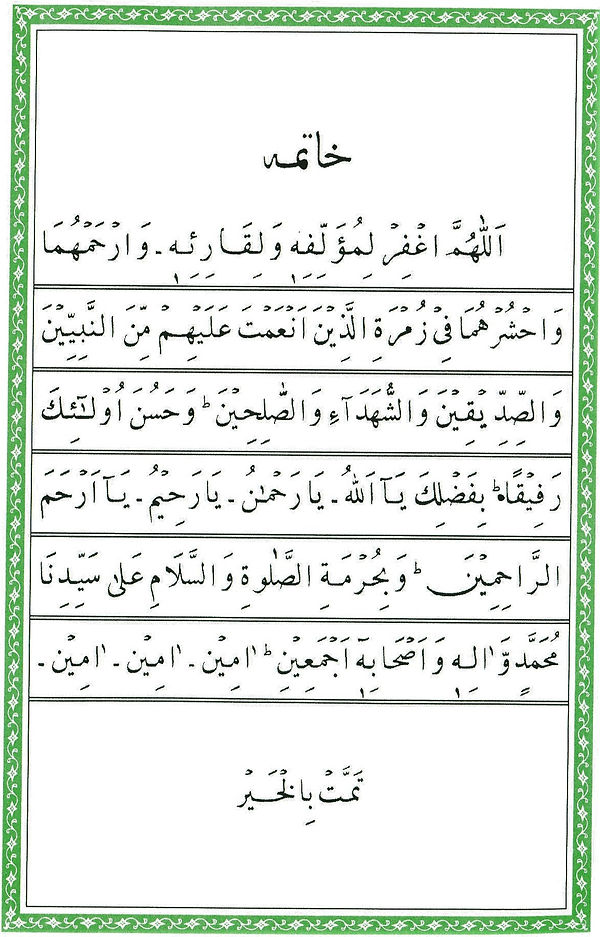 خاتمه
اَللّٰهُمَّ اغْفِرْ لِمُؤَلِّفِهٖ وَلِقَارِئِهٖ ـ وَارْحَمْهُمَا
وَاحْشُرْهُمَا فِیْ زُمْرَةِ الَّذِیْنَ اَنْعَمْتَ عَلَیْهِمْ مِّنَ النَّبِیِّیْنَ
وَالصِّدِّیْقِیْنَ وَالشُّهَدَآءِ وَالصّٰلِحِیْنَ ؕ وَحَسُنَ اُولٰٓئِكَ
رَفِیْقًا ؕ بِفَضْلِكَ یَآ اَللّٰهُ ـ یَارَحْمٰنُ ـ یَارَحِیْمُ ـ یَآ اَرْحَمَ
الرَّاحِمِیْنَ ؕ وَبِحُرْمَةِ الصَّلٰوةِ وَالسَّلَامِ عَلٰی سَیِّدِنَا
مُحَمَّدٍ وَّاٰلِهٖ وَاَصْحَابِهٖٓ اَجْمَعِیْنَ ؕ اٰمِیْن ـ اٰمِیْن ـ اٰمِیْن ـ
تَمَّتْ بِالْخَیْر